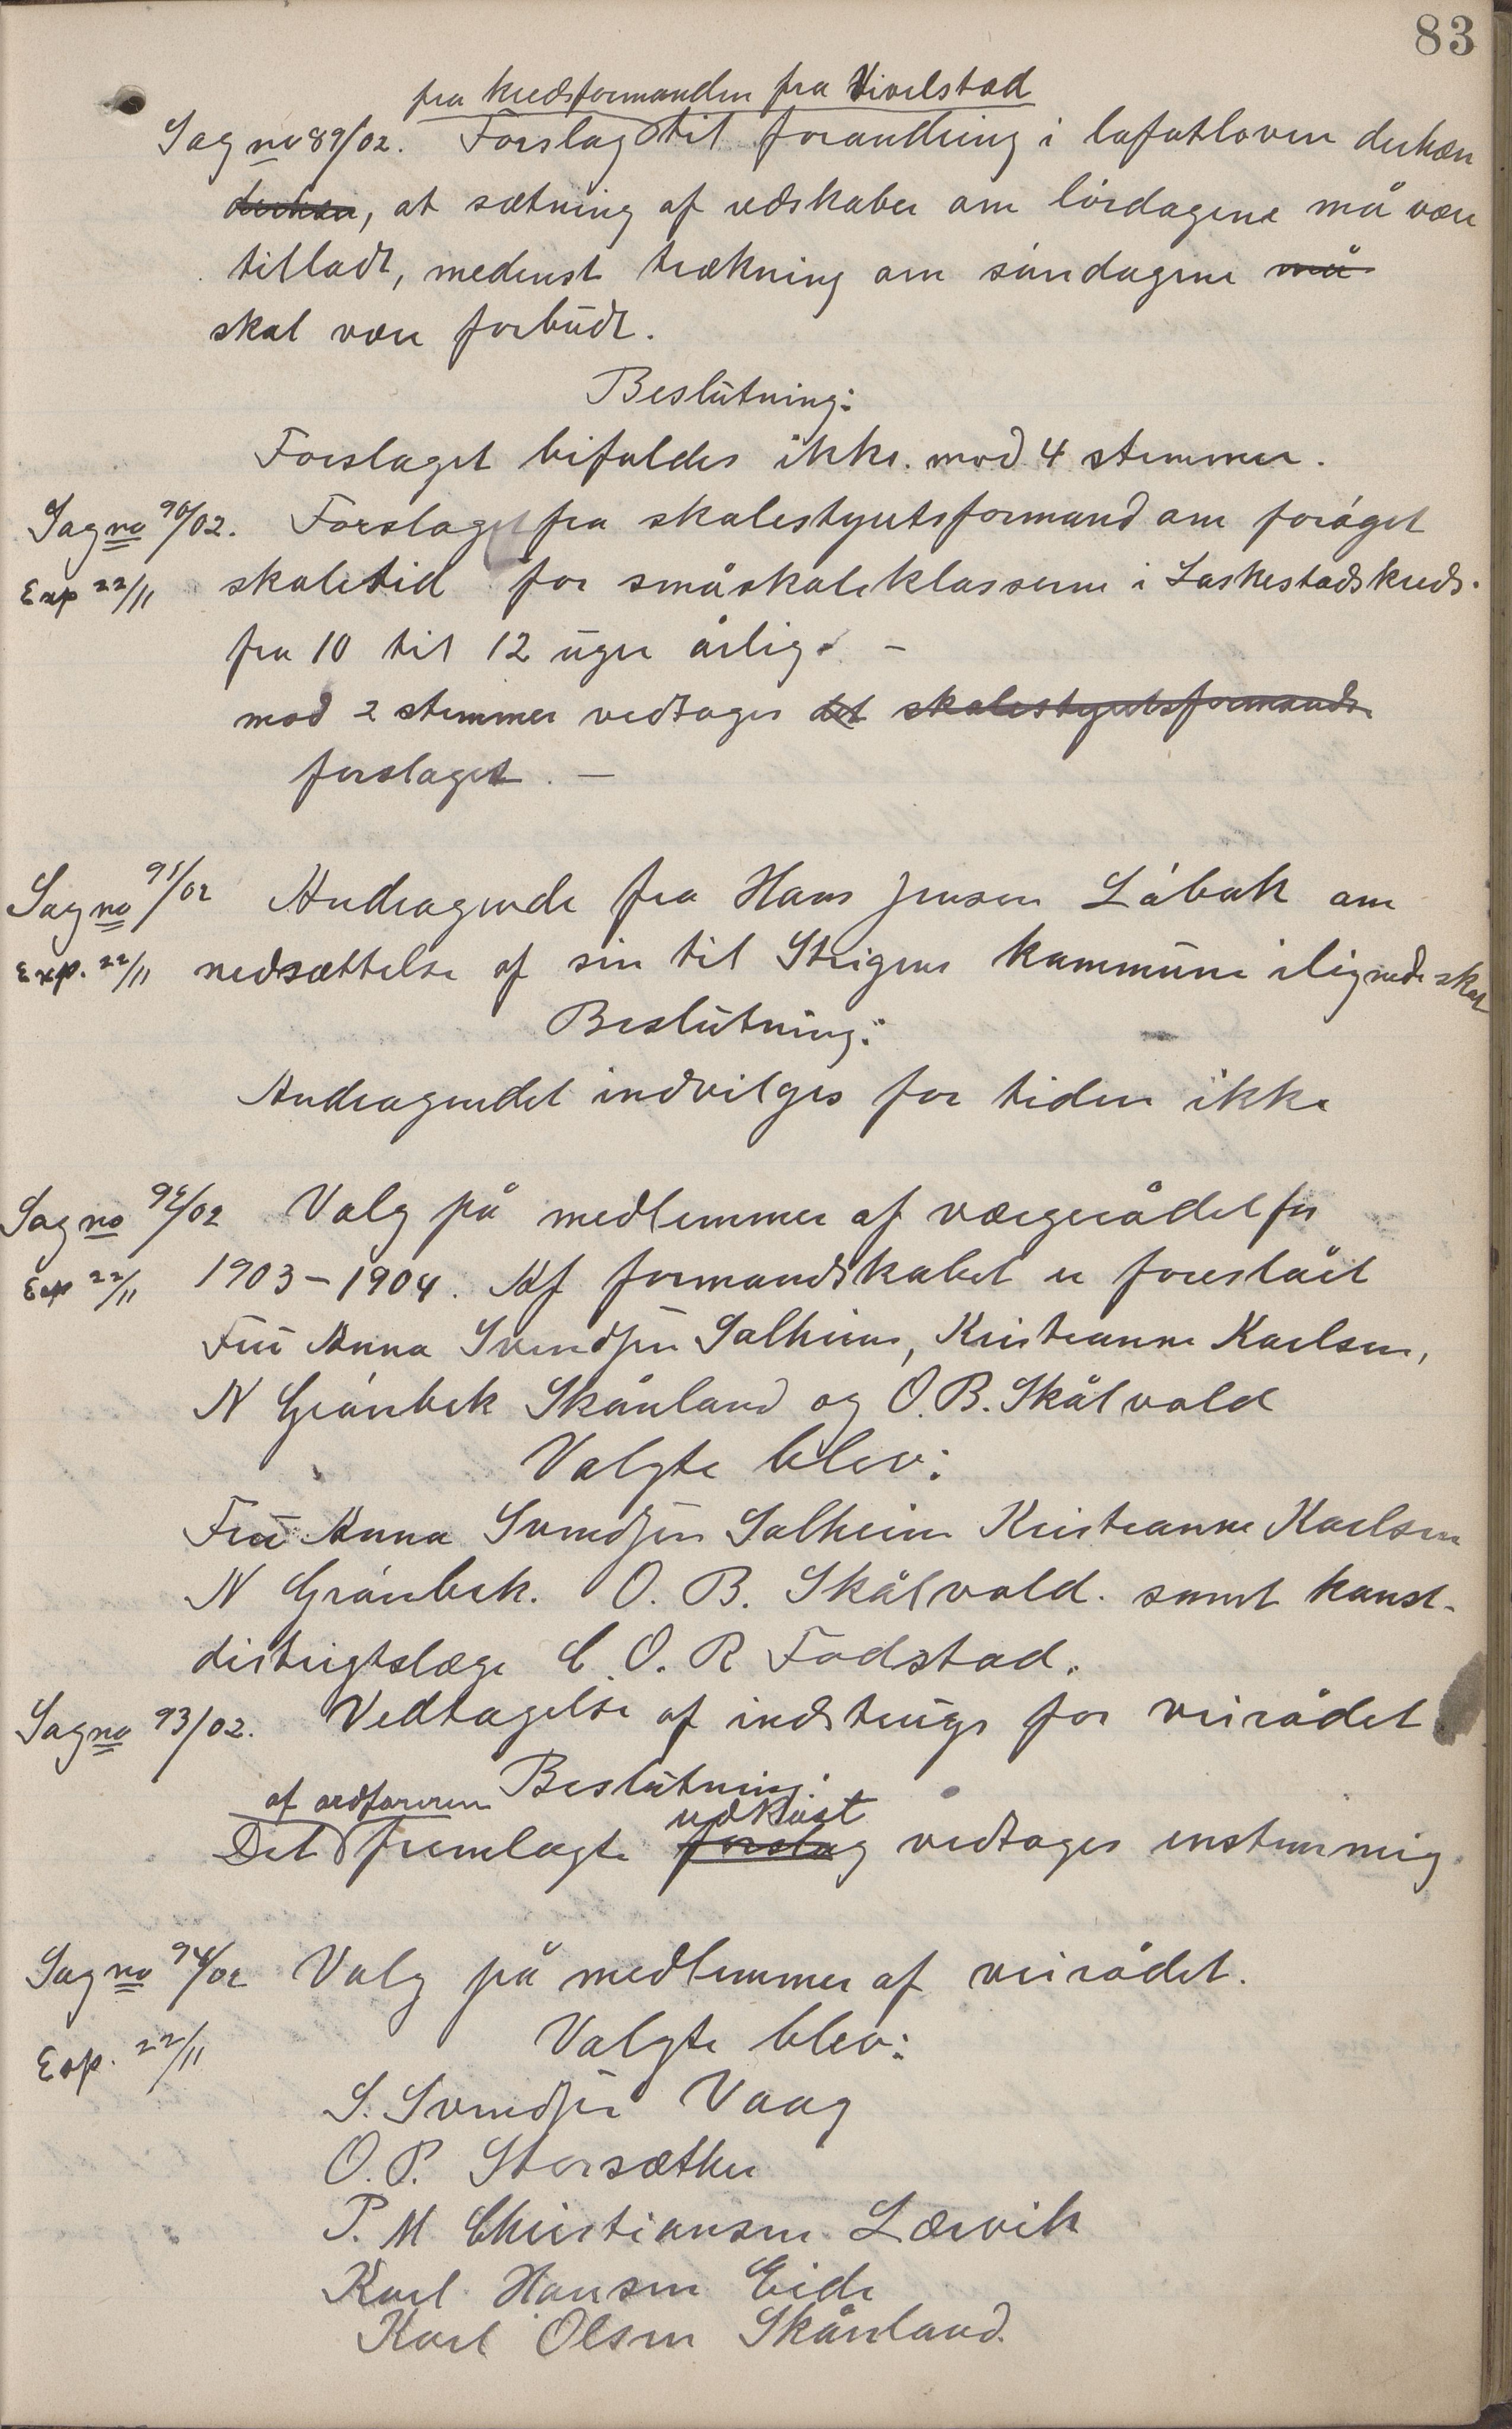 83
fra kredsformanden fra Vivelstad
Sag no 89/02. Forslag til forandring i lofotloven derhen
derhen, at sætning af redskaber om lördagene må være
tilladt, medenst trækning om söndagene må
skal være forbudt.
Beslutning:
Forslaget bifaldes ikke. mod 4 stemmer.
Sag no 90/02. Forslaget fra skolestyretsformand om foröget
Exp 22/11 skoletid for småskoleklasserne i Laskestadskreds.
fra 10 til 12 uger årlig. –
mod 2 stemmer vedtages det skolestyretsformands
forslaget. –
Sag no 91/02 Andragende fra Hans Jensen Löbak om
Exp. 22/11 nedsættelse af sin til Steigens kommune ilignede skat
Beslutning:
Andragendet indvilges for tiden ikke
Sag no 92/02 Valg på medlemmer af værgerådet for
Exp 22/11 1903–1904. Af formandskabet er foreslået
Fru Anna Svendsen Salheim, Kristianne Karlsen,
N Grönbek Skånland og O. B. Skålvold
Valgte blev:
Fru Anna Svendsen Salheim Kristianne Karlsen
N Grönbek. O. B. Skålvold. samt konst.
distrigtslæge C. O. R Fodstad.
Sag no 93/02. Vedtagelse af indstrugs for veirådet
Beslutning:
af ordföreren udkast
Det fremlagte forslag vedtages enstemmig
Sag no 94/02 Valg på medlemmer af veirådet.
Exp. 22/11 Valgte blev:
S. Svendsen Vaag
O. P. Storsæther
P. M Christiansen Lærvik
Karl Hansen Eide
Karl Olsen Skånland.